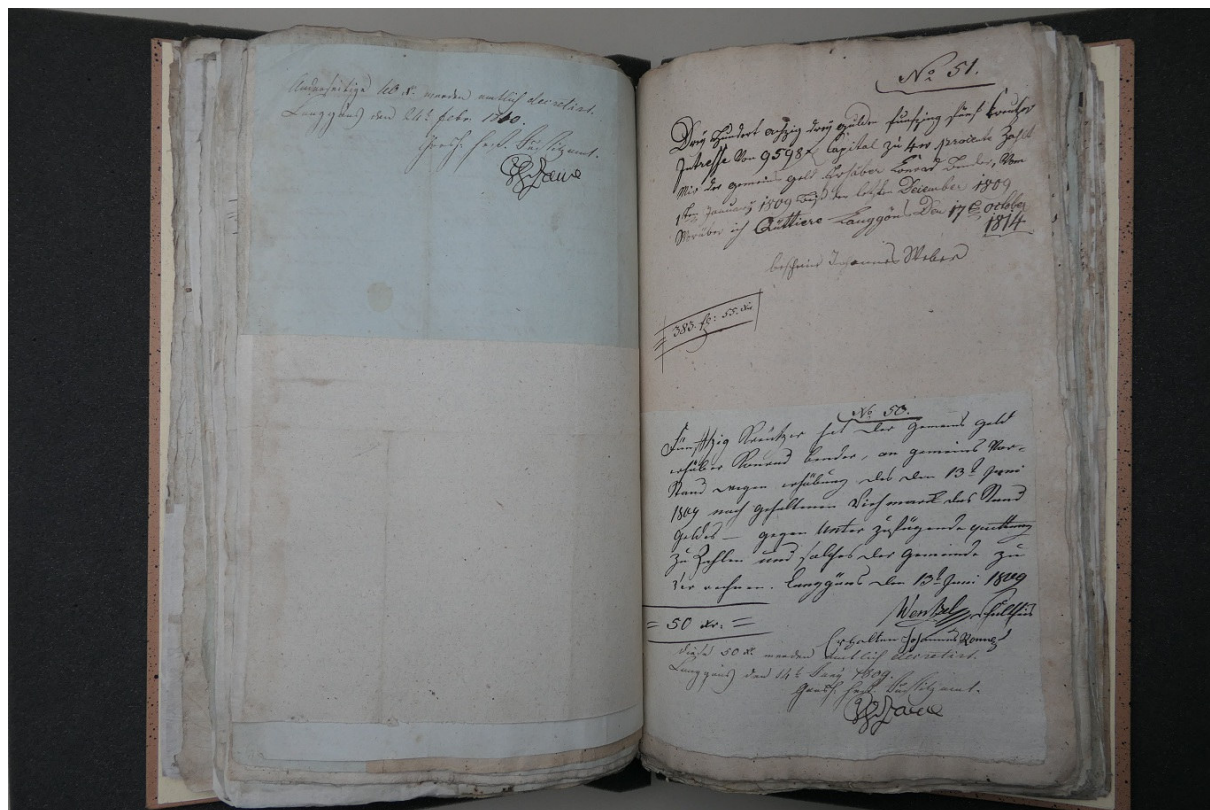 Anderseitige 40 x. werden amtlich decretirt.
Langgöns den 24t. Febr. 1810.
Großh. Hess. Justitzamt.
No 51.
Drey Hundert achzig drey Gulden funfzig fünf Kreutzer
Intresse Von 9598 f Capital zu 4er procent Zahlt
Mir der gemeins geld Erhöber Conrad Bender, Vom
1ten January 1809 biß den letzten December 1809
Worüber ich Quittiere Langgöns Den 17t October
1814
bescheind Johannes Weber
383. fl: 55. xr
No 50.
Fünfftzig Kreutzer hat der gemeins geld
erhöber Konrad bender, an gemeins Vor-
stand wegen erhöbung des den 13t Juni
1809 nach gehaltenen Viehmarck des Stand
geldes — gegen Unter zufügende quittung
zu Zahlen und solches der gemeinde zu
Ver rechnen. Langgöns den 13t Juni 1809
Wentzel Schultheis
= 50 xr. =
Erhalten Johannes
diese 50 x. werden amtlich decretirt.
Langgöns den 14t Juny 1809.
Großh. Hess. Justitzamt.